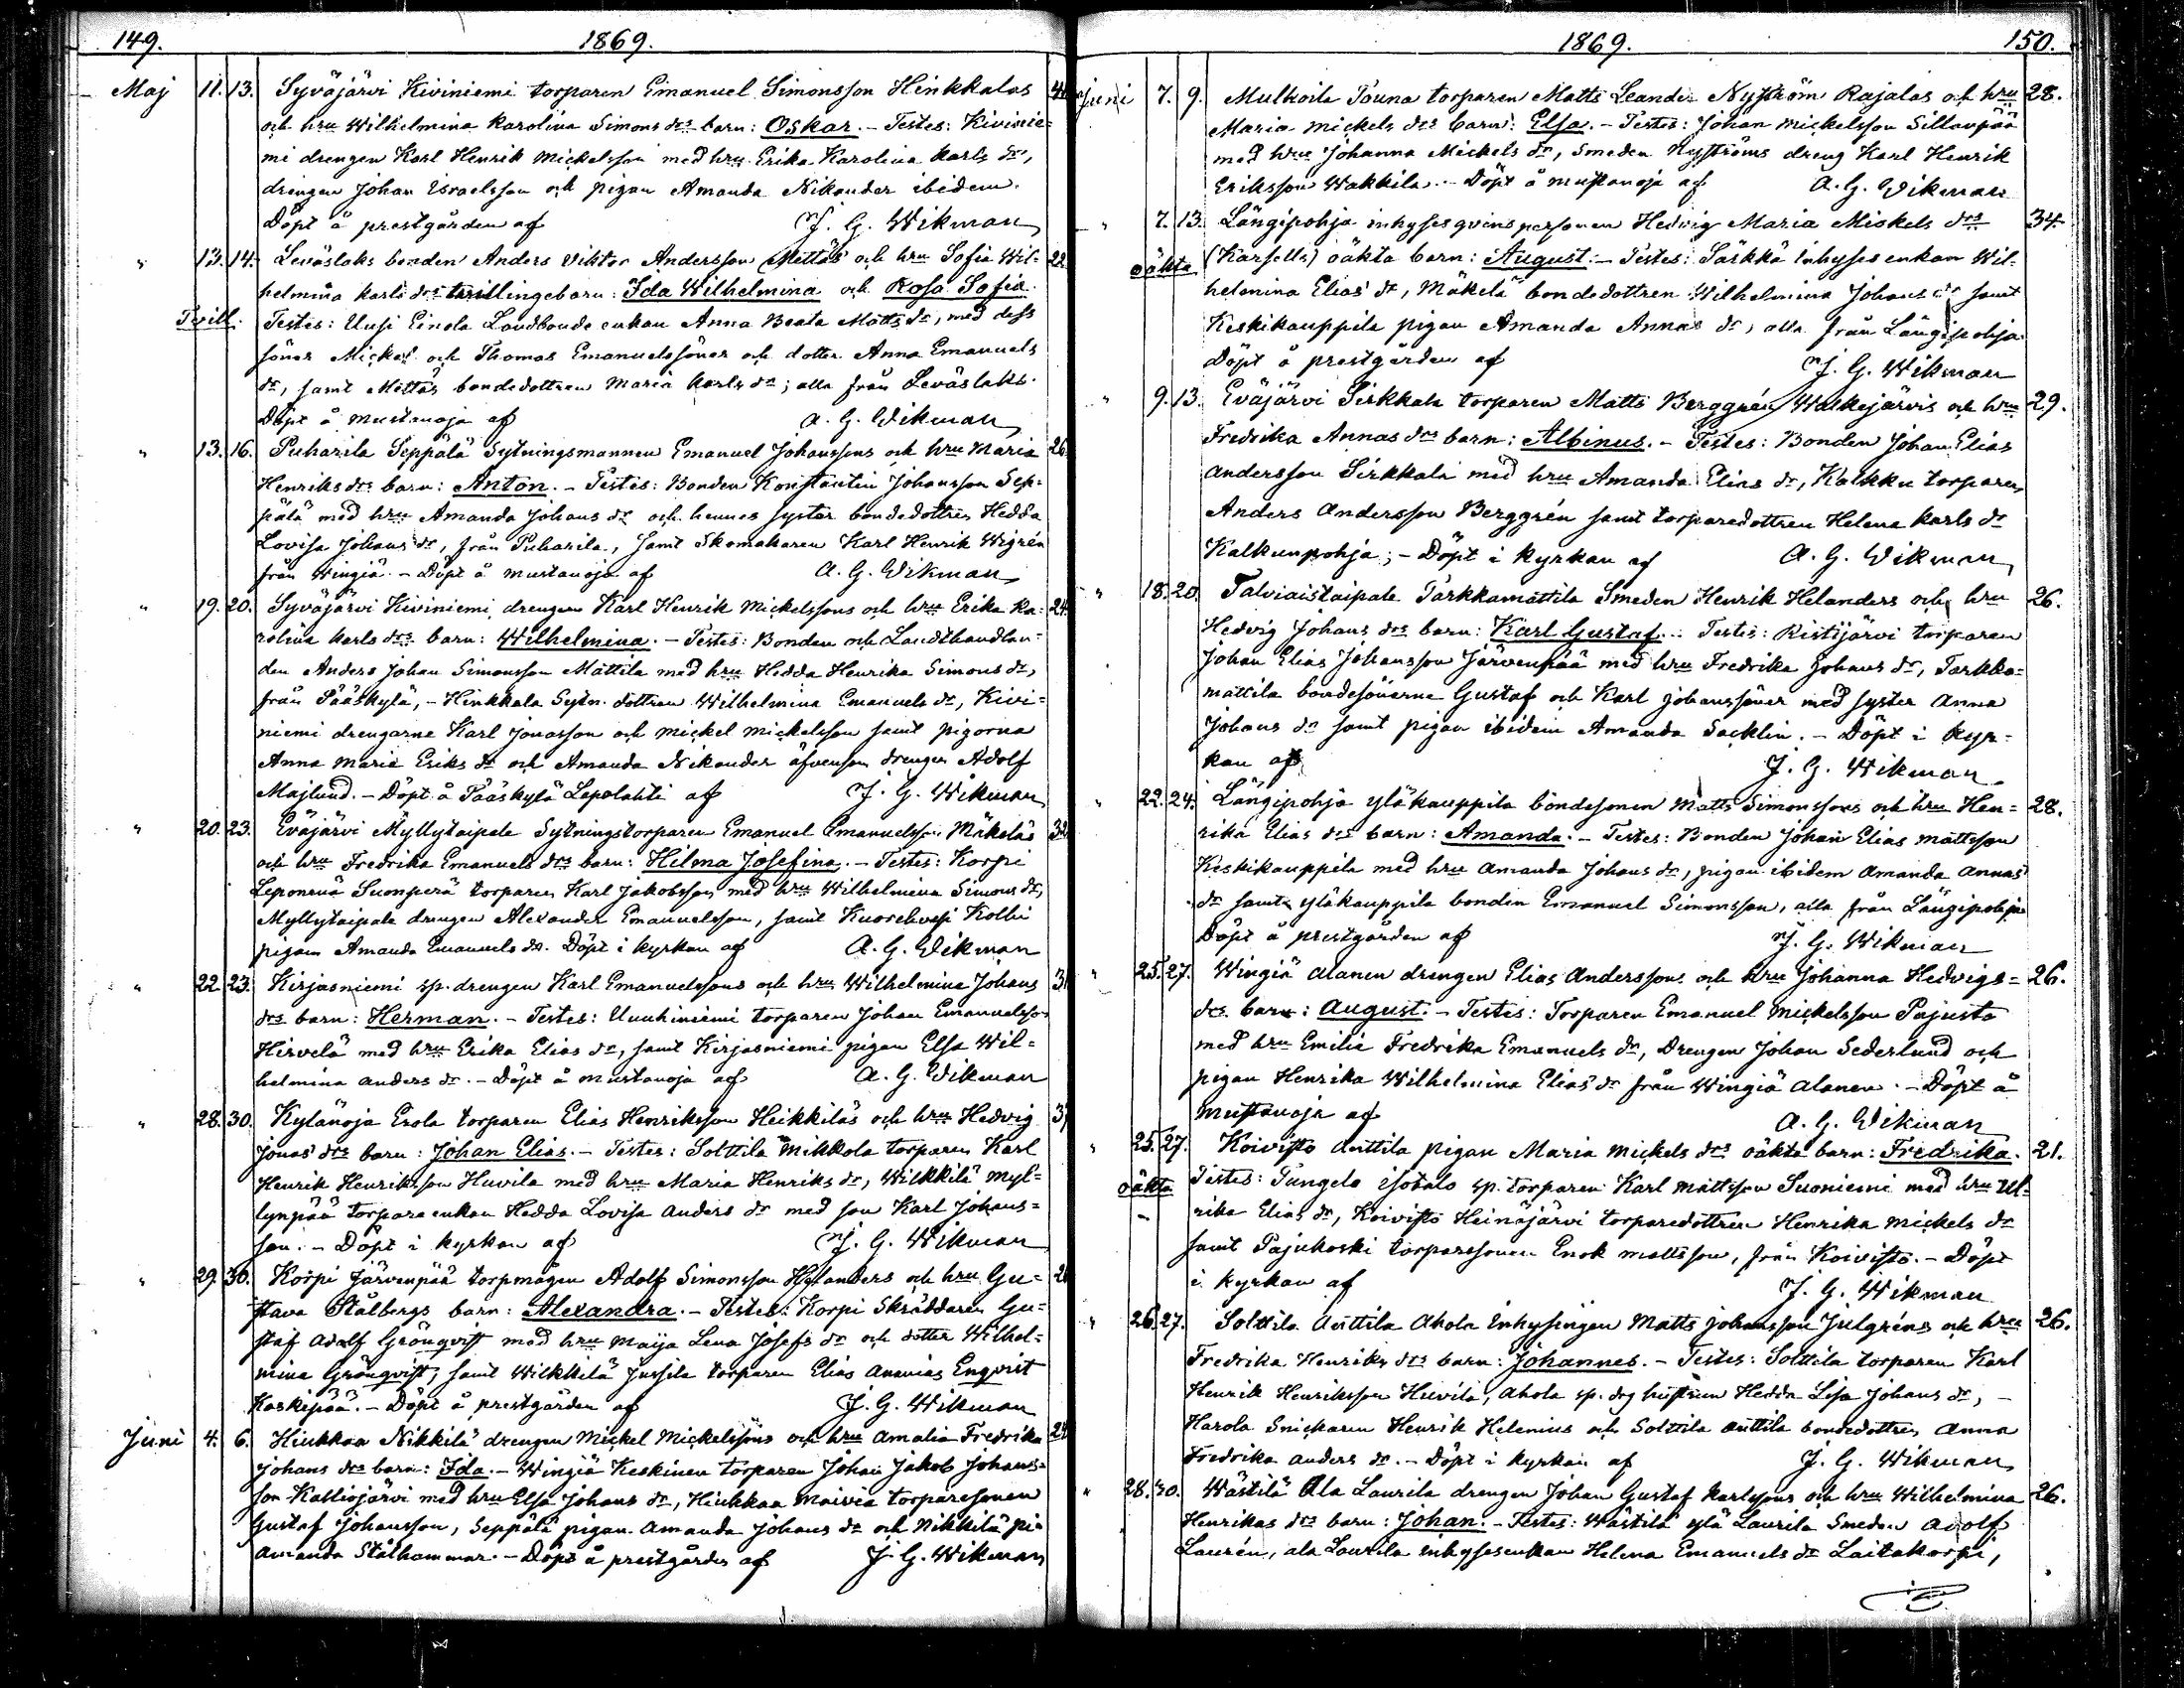 149. 1869.
Maj 11. 13. Syväjärvi Kiviniemi torparen Emanuel Simonsson Hinkkalas
och hru Wilhelmina Karolina Simons drs barn: Oskar. - Testes: Kivinie=
mi drengen Karl Henrik Mickelsson med hru Erika Karolina Karls dr,
drengen Johan Israelsson och pigan Amanda Nikander ibidem.
Döpt å prestgården af J. G. Wikman
" 13. 14. Leväslaks bonden Anders Viktor Andersson Mattas och hru Sofia Wil= 22
helmina Karls drs tvillingebarn: Ida Wilhelmina och Rosa Sofia.
Tvill. Testes: Uusi Einola Landbonde enkan Anna Beata Matts dr, med dess
söner Mickel och Thomas Emanuelssöner och dotter Anna Emanuels
dr, samt Mattas bondedottren Maria Karls dr; alla från Leväslaks.
Döpt å Mustanoja af A. G. Wikman
" 13. 16. Puharila Seppälä Sytningsmannen Emanuel Johanssons och hru Maria 26
Henriks drs barn: Anton. - Testes: Bonden Konstantin Johansson Sep=
pälä med hru Amanda Johans dr och hennes syster bondedottren Hedda
Lovisa Johans dr, från Puharila, samt Skomakaren Karl Henrik Wigrén
från Wingiä. - Döpt å Mustanoja af A. G. Wikman
" 19. 20. Syväjärvi Kiviniemi drengen Karl Henrik Mickelssons och hru Erika Ka= 24
rolina Karls drs barn: Wilhelmina. - Testes: Bonden och Landthandlan=
den Anders Johan Simonsson Mattila med hru Hedda Henrika Simons dr,
från Pääskylä, - Hinkkala Sytn. dottren Wilhelmina Emanuels dr, Kivi=
niemi drengarne Karl Jonasson och Mickel Mickelsson samt pigorna
Anna Maria Eriks dr och Amanda Nikander äfvensom drengen Adolf
Majlund. - Döpt å Pääskylä Lepolahti af J. G. Wikman
" 20. 23. Eväjärvi Myllytaipale Sytningstorparen Emanuel Emanuelsson Mäkeläs 32
och hru Fredrika Emanuels drs barn: Hilma Josefina. - Testes: Korpi
Leponevä Suonperä torparen Karl Jakobsson med hru Wilhelmina Simons dr,
Myllytaipale drengen Alexander Emanuelsson, samt Kuorehvesi Kolhi
pigan Amanda Emanuels dr. Döpt i kyrkan af A. G. Wikman
" 22 23. Kirjasniemi sp. drengen Karl Emanuelssons och hru Wilhelmina Johans 3
drs barn: Herman. - Testes: Unnkiniemi torparen Johan Emanuelsson
Hirvelä med hru Erika Elias dr, samt Kirjasniemi pigan Elsa Wil=
helmina Anders dr. - Döpt å Mustanoja af A. G. Wikman
" 28. 30. Kylänoja Erola torparen Elias Henriksson Heikkiläs och hru Hedvig 3
Jonas drs barn: Johan Elias. - Testes: Solttila Mikkola torparen Karl
Henrik Henriksson Huvila med hru Maria Henriks dr, Wilkkilä Myl=
lynpää torpareenkan Hedda Lovisa Anders dr med son Karl Johans=
son. - Döpt i kyrkan af J. G. Wikman
" 29. 30. Korpi Järvenpää torpmågen Adolf Simonsson Hylanders och hru Gu= 2
stava Stålbergs barn: Alexandra. - Testes: Korpi Skräddaren Gu=
staf Adolf Grönqvist med hru Maija Lena Josefs dr och dotter Wilhel=
mina Grönqvist, samt Wilkkilä Jussila torparen Elias Ananias Enqvist
Koskipää. - Döpt å prestgården af J. G. Wikman
Juni 4. 6. Hinkkaa Nikkilä drengen Mickel Mickelssons och hru Amalia Fredrika 24
Johans drs barn: Ida. - Wingiä Keskinen torparen Johan Jakob Johans=
son Kalliojärvi med hru Elsa Johans dr, Hinkkaa Moivia torparesonen
Gustaf Johansson, Seppälä pigan Amanda Johans dr och Nikkilä pi=
Amanda Stålhammar. - Döpt å prestgården af J. G. Wikman
1869. 150.
Juni 7. 9. Mulkoila Touna torparen Matts Leander Nyström Rajalas och hru 28.
Maria Mickels drs barn: Elsa. - Testes: Johan Mickelsson Sillanpää
med hru Johanna Mickels dr, Smeden Nyströms dreng Karl Henrik
Eriksson Wakkila. - Döpt å Mustanoja af A. G. Wikman
" 7. 13. Längipohja inhysesqvinspersonen Hedvig Maria Mickels drs 34.
oäkta (Karsells) oäkta barn: August. - Testes: Särkkä Inhysesenkan Wil=
helmina Elias dr, Mäkelä bondedottren Wilhelmina Johans dr samt
Keskikauppila pigan Amanda Annas dr, alla från Längipohja
Döpt å prestgården af J. G. Wikman
" 9. 13. Eväjärvi Sirkkala torparen Matts Berggrén Walkejärvis och hru 29.
Fredrika Annas drs barn: Albinus. - Testes: Bonden Johan Elias
Andersson Sirkkala med hru Amanda Elias dr, Kalkku torparen
Anders Andersson Berggrén samt torparedottren Helena Karls dr
Kalkunpohja; - Döpt i kyrkan af A. G. Wikman
" 18. 20. Talviaistaipale Tarkkamattila Smeden Henrik Helanders och hru 26.
Hedvig Johans drs barn: Karl Gustaf. - Testes: Ristijärvi torparen
Johan Elias Johansson Järvenpää med hru Fredrika Johans dr, Tarkka=
mattila bondesönerna Gustaf och Karl Johanssöner med syster Anna
Johans dr samt pigan ibidem Amanda Sacklin. - Döpt i kyr=
kan af J. G. Wikman
" 22. 24. Längipohja yläkauppila bondesonen Matts Simonssons och hru Hen= 28.
rika Elias drs barn: Amanda. - Testes: Bonden Johan Elias Mattsson
Keskikauppila med hru Amanda Johans dr, pigan ibidem Amanda Annas
dr samt yläkauppila bonden Emanuel Simonsson, alla från Längipohja
Döpt å prestgården af J. G. Wikman
" 25. 27. Wingiä Alanen drengen Elias Anderssons och hru Johanna Hedvigs= 26.
drs barn: August. - Testes: Torparen Emanuel Mickelsson Pajusto
med hru Emilie Fredrika Emanuels dr, Drengen Johan Sederlund och
pigan Henrika Wilhelmina Elias dr från Wingiä Alanen. - Döpt å
Mustanoja af A. G. Wikman
" 25. 27. Koivisto Anttila pigan Maria Mickels drs oäkta barn: Fredrika. 21.
oäkta Testes: Pungelo Isotalo sp. torparen Karl Mattsson Suoniemi med hru Ul=
rika Elias dr, Koivisto Heinäjärvi torparedottren Henrika Mickels dr
samt Pajukoski torparesonen Enok Mattsson, från Koivisto. - Döpt
i kyrkan af J. G. Wikman
" 26. 27. Solttila Anttila Ahola Inhysingen Matts Johansson Julgréns och hru 26.
Fredrika Henriks drs barn: Johannes. - Testes: Solttila torparen Karl
Henrik Henriksson Huvila, Ahola sp. drg hustrun Hedda Lisa Johans dr, -
Harola Snickaren Henrik Helenius och Solttila Anttila bondedottren Anna
Fredrika Anders dr. - Döpt i kyrkan af J. G. Wikman
" 28. 30. Wästilä Ala Laurila drengen Johan Gustaf Karlssons och hru Wilhelmina 26.
Henrikas drs barn: Johan. - Testes: Wästilä ylä Laurila Smeden Adolf
Laurén, ala Laurila inhysesenkan Helena Emanuels dr Laitakorpi,